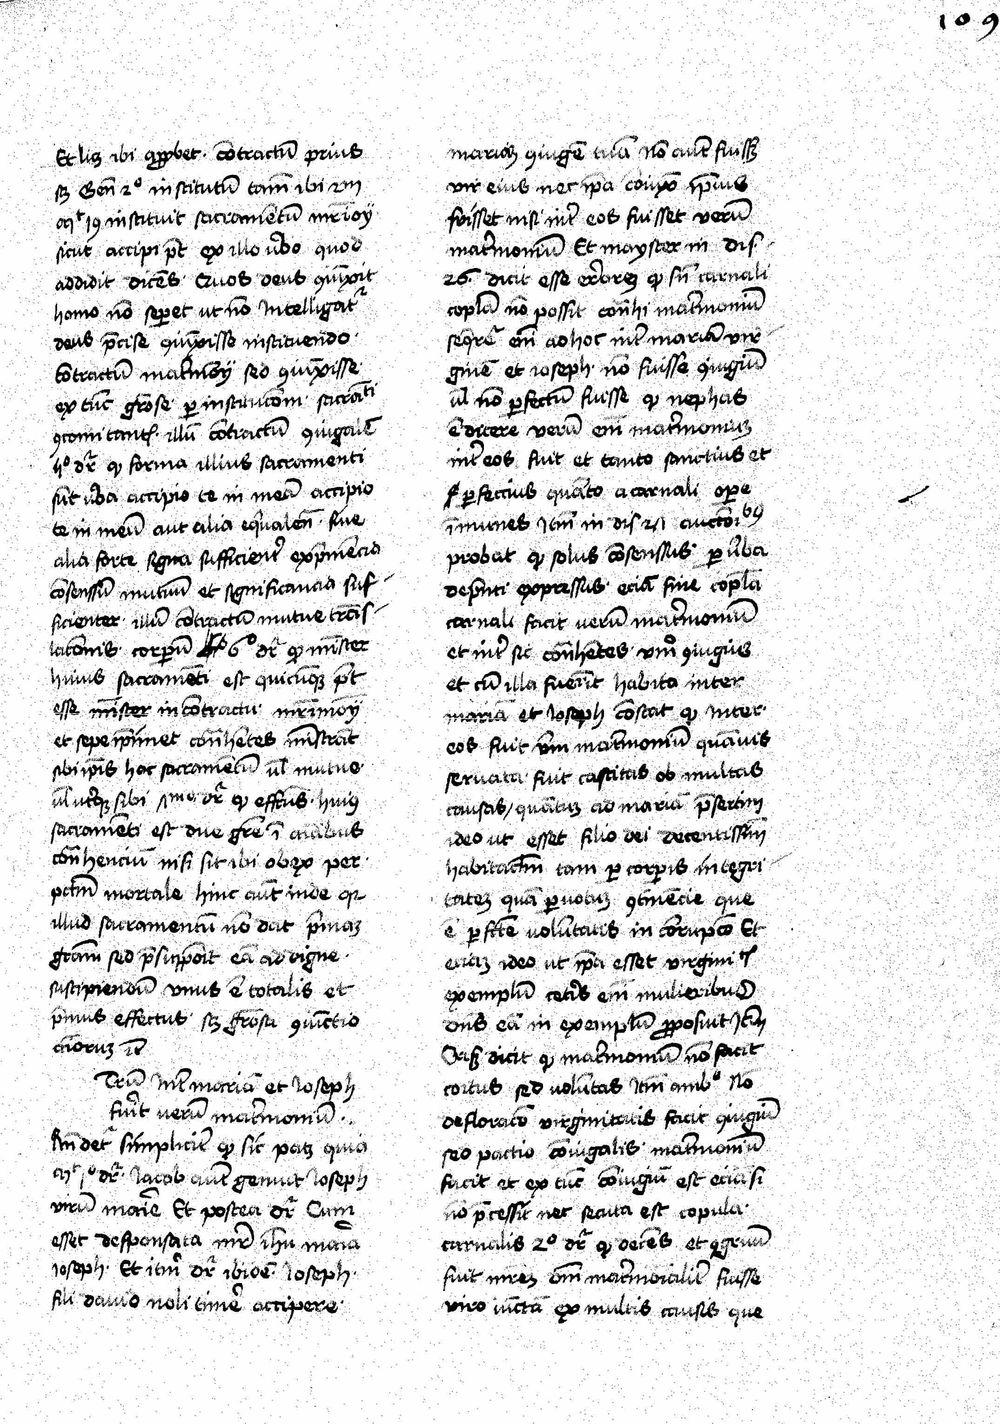 109
Et licet ibi approbet contractum prius
scilicet Gen 2º institutum tamen ibi
mt 19 instituit sacramentum mrimoy
sicut accipi pt ex illo verbo quod
addidit dicens Quos deus coniunxit
homo non seperet ut non Intelligatur
deus precise coniunxisse instituendo
contractum matrimoy sed coniunxisse
ex tunc grose per institucom sacramti
concomitantis illum contractum coniugalem
dr q forma illius sacramenti
sunt verba accipio te in meam accipio
te in meum aut alia equivalen sive
alia forte signa sufficienter exprimencia
consensum mutuum et significancia suf-
ficienter illum contractum mutue trans-
lationis corporum 6º dr q minister
huius sacramenti est quicunq pt
esse minister in contractu mrimoy
et sepe ipsimet contrahentes ministrant
sibi ipsis hoc sacramentum vel mutuo
vel uterq sibi dr q effectus huius
sacramenti est due gre in animabus
contrahencium nisi sit ibi obex per
pctm mortale hinc aut inde quia
illud sacramentum non dat primam
gram sed presupponit eam ad digne
suscipiendum unus e totalis et
primus effectus scilicet grosa coniunctio
animorum
Utrum Inter mariam et Joseph
fuerit verum matrimonium
Rndetur simpliciter q sic patet quia
mt 1º dr Jacob autem genuit Joseph
virum marie Et postea dr Cum
esset desponsata mr ihu maria
ioseph Et itm dr ibidem Joseph
fili david noli timere accipere
mariam coniugem tuam non autem fuisset
vir eius nec ipsa coniunx ipsius
fuisset nisi inter eos fuisset verum
matrimonium Et mayster in dis
26 dicit esse errorem q sine carnali
copla non possit contrahi matrimonium
sequeretur enim adhoc inter mariam vir-
ginem et ioseph non fuisse coniugium
vel non perfectum fuisse q nephas
e dicere verum enim matrimonium
inter eos fuit et tanto sanctius et
perfeccius quanto a carnali opere
immunes Itm in dis auctoribus
probat q solus consensus per verba
de presenti expressus eciam sine copla
carnali facit verum matrimonium
et inter sic contrahentes vim coniugii
et cum illa fuerint habita inter
mariam et Joseph constat q inter
eos fuit verum matrimonium quamvis
servata fuit castitas ob multas
causas quantum ad mariam presertim
ideo ut esset filio dei decentissimum
habitaculum tam per corporis integri-
tatem quam per votum continencie que
e perfecte voluntatis in corrupcio Et
eciam ideo ut ipsa esset virginitatis
exemplum ceteris enim mulieribus
dns eam in exemplum proposuit Item
Crisos dicit q matrimonium non facit
coitus sed voluntas Itm ambº Non
defloracio virginitatis facit coniugium
sed pactio coniugalis matrimonium
facit et ex tunc coniugium est eciam si
non precessit nec secuta est copula
carnalis 2º dr q decens et congruum
fuit mrem dni matrimonialiter fuisse
viro iunctam ex multis causis que